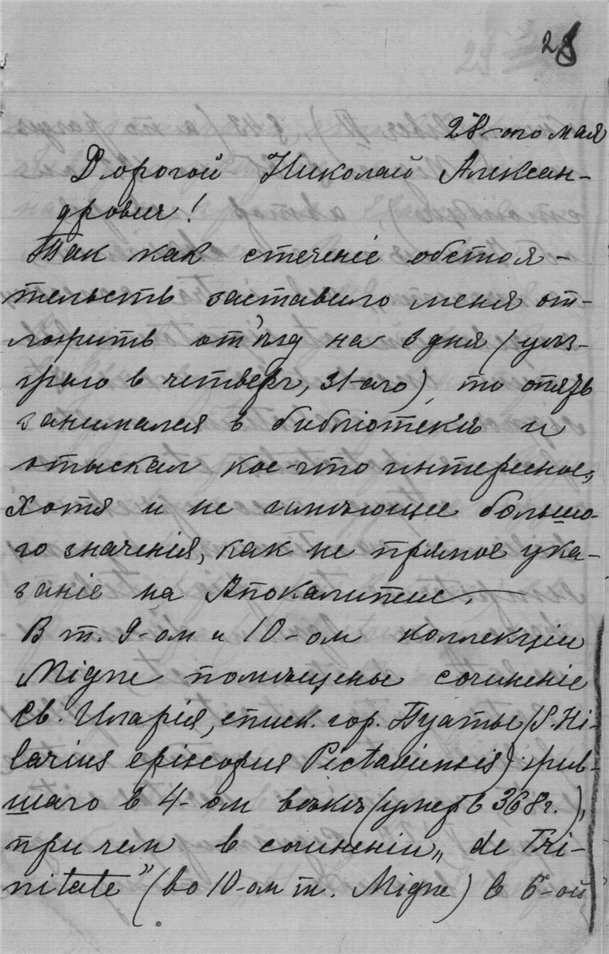 28
28-ого мая
Дорогой Николай Алексан-
дрович!
Так как стеченіе обстоя-
тельствъ заставило меня от-
ложить отъѣзд на 2 дня (уѣз-
жаю в четверг, 31-аго), то опять
занимался в библіотекѣ и
отыскал кое-что интересное,
хотя и не имѣющее большо-
го значенія, как не прямое ука-
заніе на Апокалипсис.
В т. 9-ом и 10-ом коллекціи
Migne помѣщены сочиненіе
Св. Иларія, еписк. гор. Пуатье (S. Hi-
larius episcopus Pictaviensis) жив-
шаго в 4-ом вѣкѣ (умер в 368 г.),
при чем в сочиненіи „de Tri-
nitate” (во 10-ом т. Migne) в 6-ой